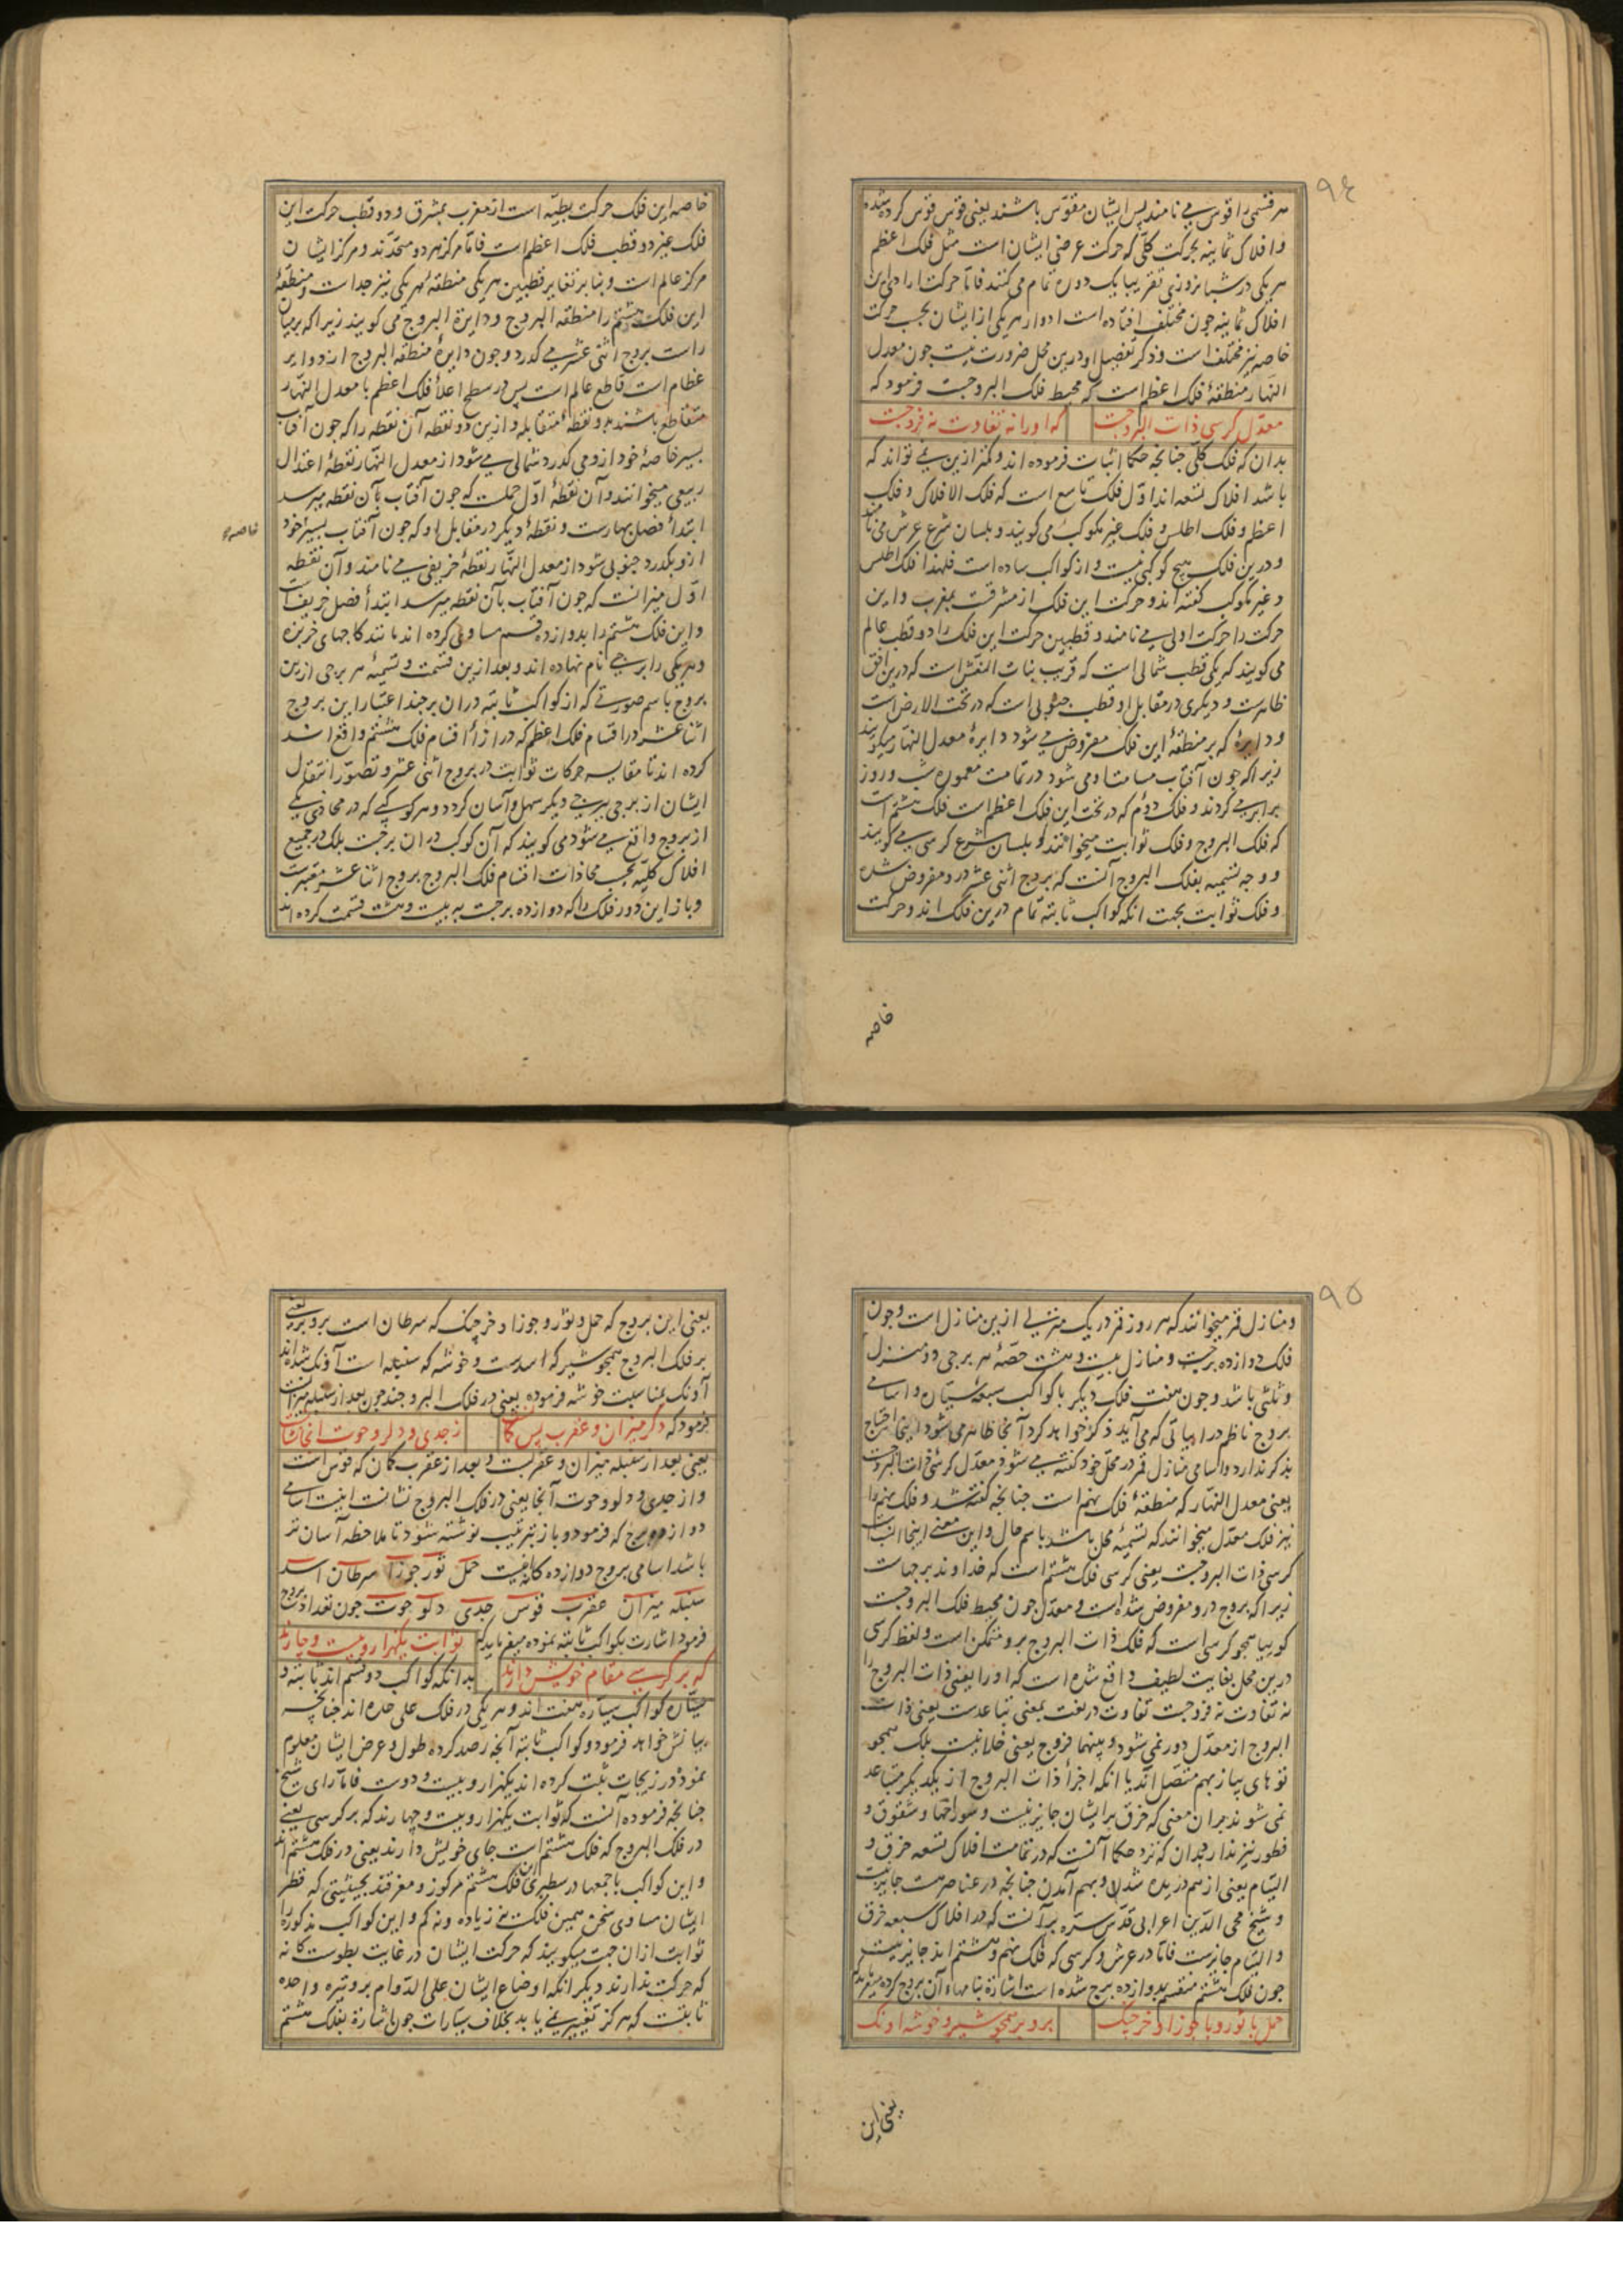 ٩٤
هر قسمی را قوس می نامند پس ایشان مقوّس باشند یعنی قوس قوس کرده شده
و افلاک ثمانیه بحرکت کلّی که حرکت عرضی ایشان است مثل فلک اعظم
هر یکی در شبانروزی تقریبا یک دوره تمام می کنند فامّا حرکت ارادی این
افلاک ثمانیه چون مختلف افتاده است ادوار هر یکی از ایشان بحسب حرکت
خاصه نیز مختلف است و ذکر تفصیل او درین محل ضرورت نیست چون معدل
النهار منطقهٔ فلک اعظم است که محیط فلک البروجست فرمود که
معدّل کرسی ذات البروجست که او را نه تفاوت نه فروجست
بدان که فلک کلّی چنانچه حکما اثبات فرموده اند و کمتر ازین نمی تواند که
باشد افلاک تسعه اند اوّل فلک تاسع است که فلک الافلاک و فلک
اعظم و فلک اطلس و فلک غیر مکوکب می کویند و بلسان شرع عرش می نامند
و درین فلک هیچ کوکبی نیست و از کواکب ساده است فلهذا فلک اطلس
و غیر مکوکب کفته اند و حرکت این فلک از مشرقست بمغرب و این
حرکت را حرکت اولی می نامند و قطبین حرکت این فلک را دو قطب عالم
می کویند که یکی قطب شمالی است که قریب بنات النعش است که درین افق
ظاهرست و دیکری در مقابل او قطب جنوبی است که در تحت الارض است
و دایرهٔ که بر منطقهٔ این فلک مفروض می شود دایرهٔ معدل النهار میکویند
زیرا که چون آفتاب مسامت او می شود در تمامت معموره شب و روز
برابر می کردند و فلک دوّم که در تحت این فلک اعظم است فلک هشتم است
که فلک البروج و فلک ثوابت میخوانند و بلسان شرع کرسی می کویند
و وجه تسمیه بفلک البروج آنست که بروج اثنی عشر درو مفروض شده
و فلک ثوابت بجهت انکه کواکب ثابته تمام درین فلک اند و حرکت
خاصه
خاصه این فلک حرکت بطیّه است از مغرب بمشرق و دو قطب حرکت این
فلک غیر دو قطب فلک اعظم است فامّا مرکز هر دو متحدّند و مرکز ایشان
مرکز عالم است و بنابر تغایر قطبین هر یکی منطقهٔ هر یکی نیز جداست و منطقهٔ
این فلک هشتم را منطقة البروج و دایرة البروج می کویند زیرا که بر میان
راست بروج اثنی عشر می کذرد و چون دایرهٔ منطقة البروج از دوایر
عظام است قاطع عالم است پس در سطح اعلاء فلک اعظم با معدل النهار
متقاطع باشند بدو نقطهٔ متقابله و ازین دو نقطه آن نقطه را که چون آفتاب
بسیر خاصهٔ خود ازو می کذرد شمالی می شود از معدل النهار نقطهٔ اعتدال
ربیعی میخوانند و آن نقطهٔ اوّل حملست که چون آفتاب بآن نقطه میرسد
ابتداء فصل بهارست و نقطهٔ دیکر در مقابل او که چون آفتاب بسیر خود
خاصه
ازو بکذرد جنوبی شود از معدل النهار نقطهٔ خریفی می نامند و آن نقطه
اوّل میزانست که چون آفتاب بآن نقطه میرسد ابتداء فصل خریف است
و این فلک هشتم را بدوازده قسم مساوی کرده اند مانند کاجهای خربزه
و هر یکی را برجی نام نهاده اند و بعد ازین قسمت و تسمیهٔ هر برجی ازین
بروج باسم صورتی که از کواکب ثابته در آن برجند اعتبار این بروج
اثنا عشر در اقسام فلک اعظم که در ازاء اقسام فلک هشتم واقع اند
کرده اند تا مقایسه حرکات ثوابت در بروج اثنی عشر و تصوّر انتقال
ایشان از برجی ببرجی دیکر سهل و آسان کردد و هر کوکبی که در محاذی یکی
از بروج واقع می شود می کویند که آن کوکب در ان برجست بلک در جمیع
افلاک کلیّه بحسب محاذات اقسام فلک البروج بروج اثنا عشر معتبرست
و باز این دور فلک را که دوازده برجست به بیست و هشت قسمت کرده اند
٩٥
و منازل قمر میخوانند که هر روز قمر در یک منزلی ازین منازل است و چون
فلک دوازده برجست و منازل بیست و هشت حصّهٔ هر برجی دو منزل
و ثلثی باشد و چون هفت فلک دیکر با کواکب سبعهٔ سیّاره و اسامی
بروج ناظم در ابیاتی که می آید ذکر خواهد کرد آنجا ظاهر می شود اینجا احتیاج
بذکر ندارد و اسامی منازل قمر در محل خود کفته می شود معدّل کرسی ذات البروجست
یعنی معدل النهار که منطقهٔ فلک نهم است چنانچه کفته شد و فلک نهم را
نیز فلک معدّل میخوانند که تسمیهٔ محل باشد باسم حال و این معنی اینجا انسب است
کرسی ذات البروجست یعنی کرسی فلک هشتم است که خداوند برجهاست
زیرا که بروج درو مفروض شده است و معدّل چون محیط فلک البروجست
کوییا همچو کرسی است که فلک ذات البروج برو متمکن است و لفظ کرسی
درین محل بغایت لطیف واقع شده است که او را یعنی ذات البروج را
نه تفاوت نه فروجست تفاوت در لغت بمعنی تباعدست یعنی ذات
البروج از معدّل دور نمی شود و بینهما فروج یعنی خلا نیست بلک همچو
توهای پیاز بهم متصل اند یا انکه اجزاء ذات البروج از یکدیکر متباعد
نمی شوند بران معنی که خرق بر ایشان جایز نیست و سوراخها و شقوق و
فطور نیز ندارد بدان که نزد حکما آنست که در تمامت افلاک تسعه خرق و
التیام یعنی از هم دریده شدن و بهم آمدن چنانچه در عناصر هست جایز نیست
و شیخ محی الدین اعرابی قدّس سرّه برآنست که در افلاک سبعه خرق
و التیام جایزست فامّا در عرش و کرسی که فلک نهم و هشتم اند جایز نیست
چون فلک هشتم منقسم بدوازده برج شده است اشارة بنامهاء آن بروج کرده میفرماید که
حمل با ثور و با جوزا و خرچنک برو بر همچو شیر و خوشه اونک
یعنی این
یعنی این بروج که حمل و ثور و جوزا و خرچنک که سرطان است برو بر یعنی
بر فلک البروج همچو شیر که اسدست و خوشه که سنبله است آونک شده اند
آونک بمناسبت خوشه فرموده یعنی در فلک البروجند چون بعد از سنبله میزانست
فرمود که دکر میزان و عقرب پس کمان ز جدی و دلو و حوت انجا نشانست
یعنی بعد از سنبله میزان و عقربست و بعد از عقرب کمان که قوس است
و از جدی و دلو و حوت آنجا یعنی در فلک البروج نشانست اینست اسامی
دوازده برج که فرمود و باز بترتیب نوشته شود تا ملاحظه آسان تر
باشد اسامی بروج دوازده کانه اینست حمل ثور جوزا سرطان اسد
سنبله میزان عقرب قوس جدی دلو حوت چون تعداد بروج
فرمود اشارت بکواکب ثابته نموده میفرماید که ثوابت یکهزار و بیست و چارند
که بر کرسی مقام خویش دارند بدانکه کواکب دو قسم اند ثابته و
سیّاره کواکب سیّاره هفت اند و هر یکی در فلک علی حده اند چنانچه
بیانش خواهد فرمود و کواکب ثابته آنچه رصد کرده طول و عرض ایشان معلوم
نموده در زیجات ثبت کرده اند یکهزار و بیست و دوست فامّا رای شیخ
چنانچه فرموده آنست که ثوابت یکهزار و بیست و چهارند که بر کرسی یعنی
در فلک البروج که فلک هشتم است جای خویش دارند یعنی در فلک هشتم اند
و این کواکب باجمعها در سطبری فلک هشتم مرکوز و مغرقند بحیثیتی که قطر
ایشان مساوی سخن همین فلکست نه زیاده و نه کم و این کواکب مذکوره را
ثوابت از ان جهت میکویند که حرکت ایشان در غایت بطوست کانه
که حرکت ندارند دیکر انکه اوضاع ایشان علی الدّوام بر وتیره واحده
ثابتست که هرکز تغییر نمی یابد بخلاف سیّارات چون اشارة بفلک هشتم